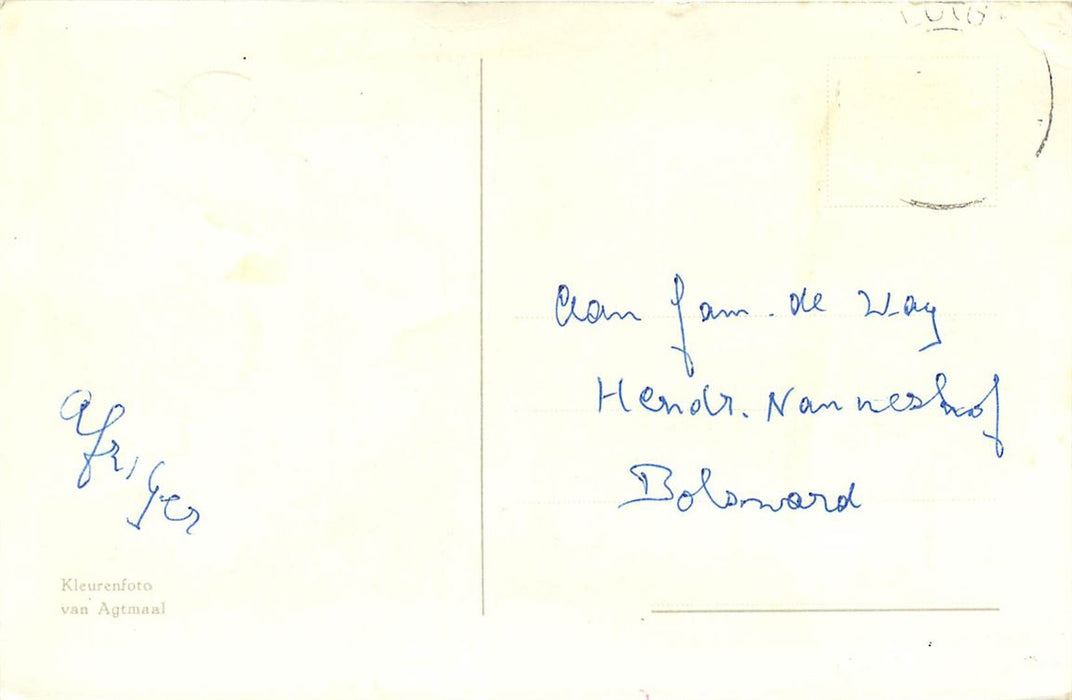 Aan fam. de Way
Hendr. Nanneshof
Bolsward
Kleurenfoto
van Agtmaal